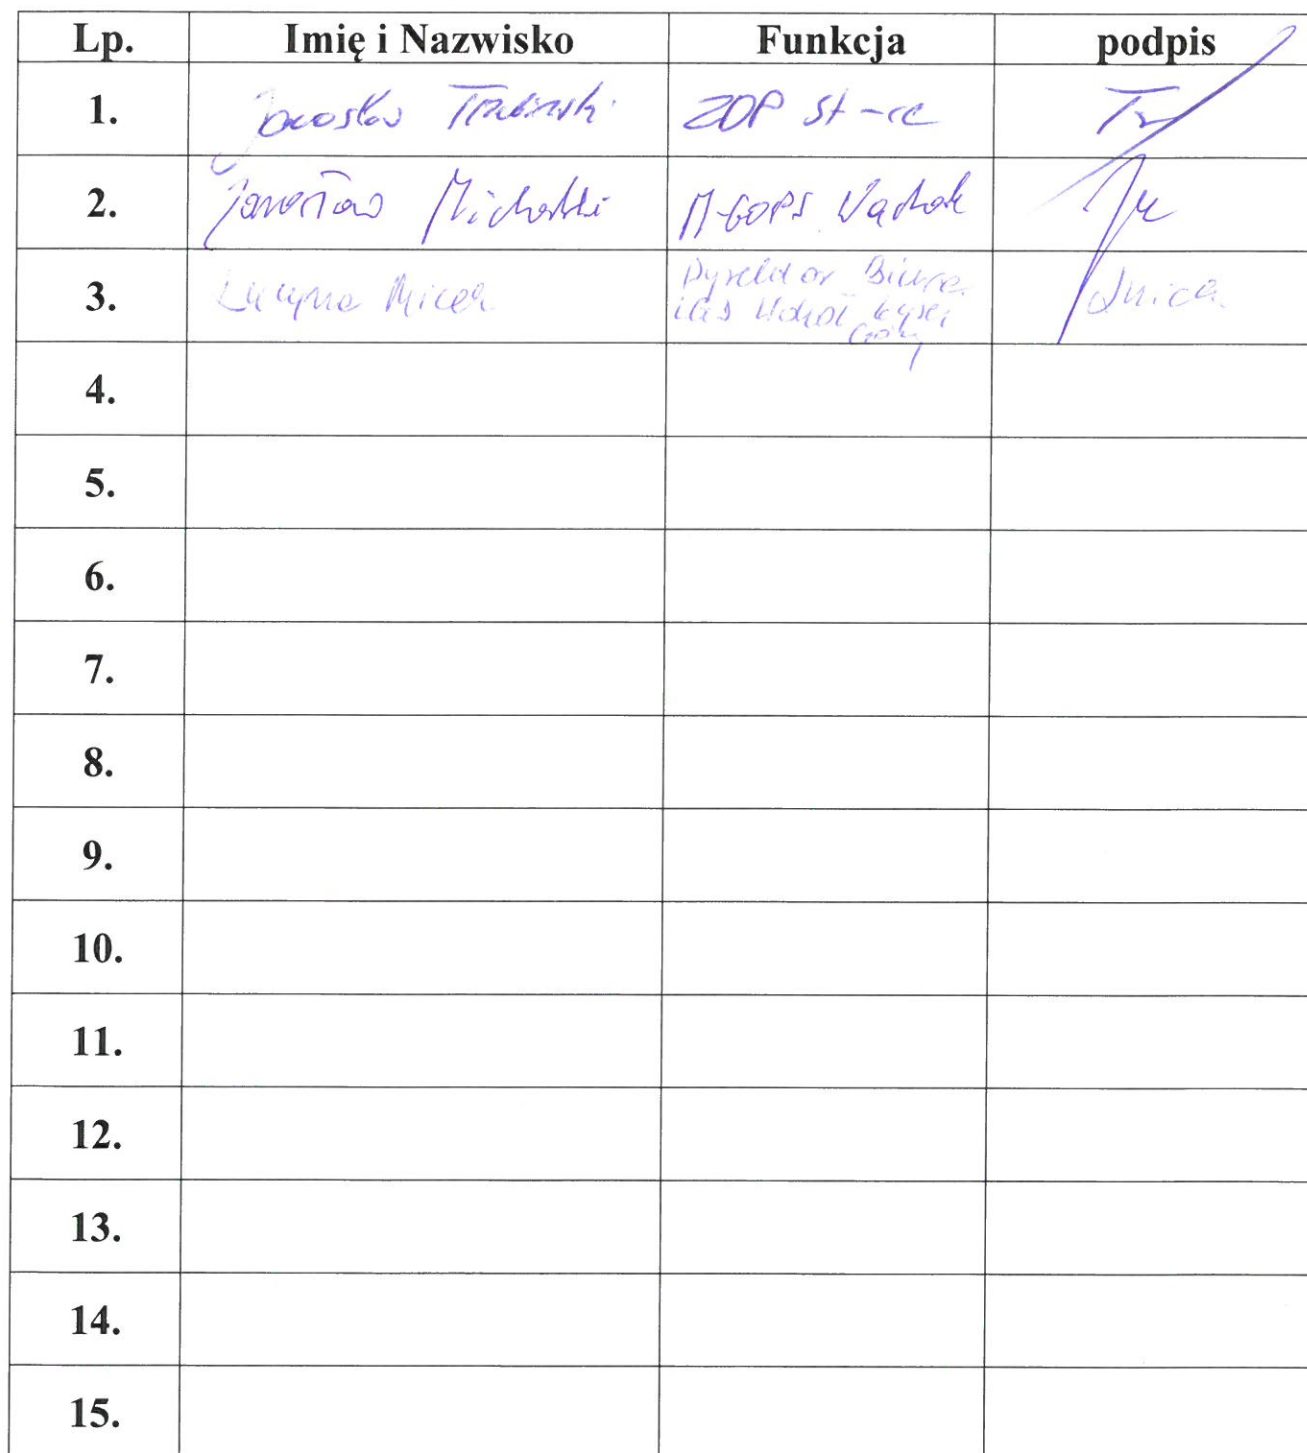 Lp. Imię i Nazwisko Funkcja podpis
1. Jarosław ZDP St-ce
2. Jarosław Michalski M-GOPS Wąchock
3. Lucyna Micek Dyrektor Biura
LGD Wokół Łysej
Góry
4.
5.
6.
7.
8.
9.
10.
11.
12.
13.
14.
15.